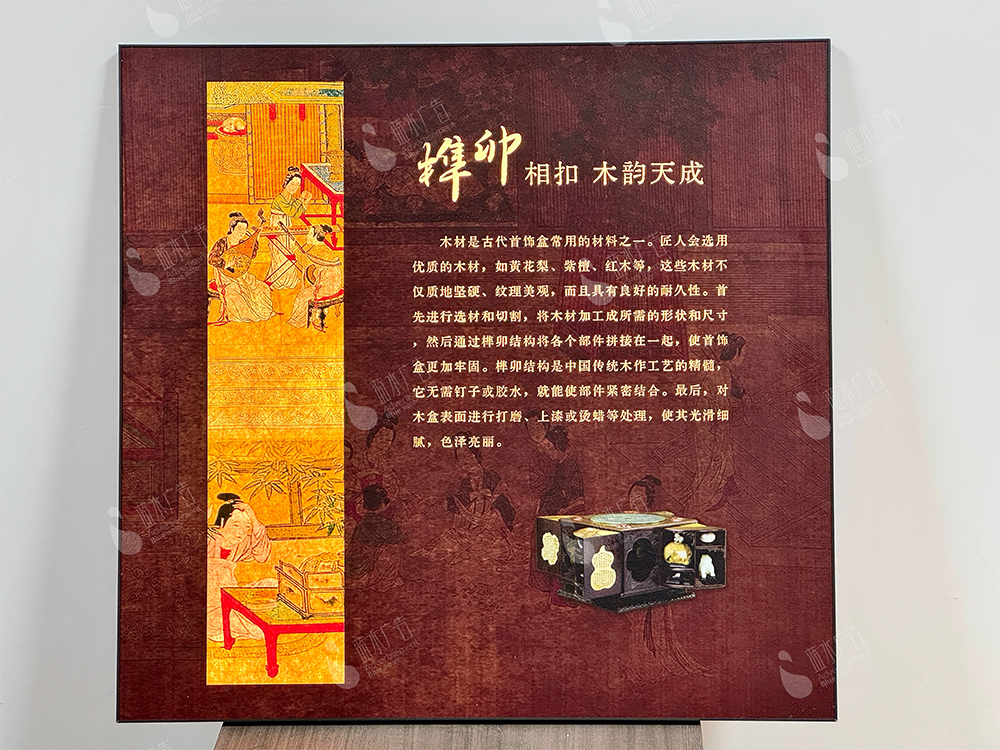 榫卯相扣 木韵天成
木材是古代首饰盒常用的材料之一。匠人会选用
优质的木材，如黄花梨、紫檀、红木等，这些木材不
仅质地坚硬、纹理美观，而且具有良好的耐久性。首
先进行选材和切割，将木材加工成所需的形状和尺寸
，然后通过榫卯结构将各个部件拼接在一起，使首饰
盒更加牢固。榫卯结构是中国传统木作工艺的精髓，
它无需钉子或胶水，就能使部件紧密结合。最后，对
木盒表面进行打磨、上漆或烫蜡等处理，使其光滑细
腻，色泽亮丽。